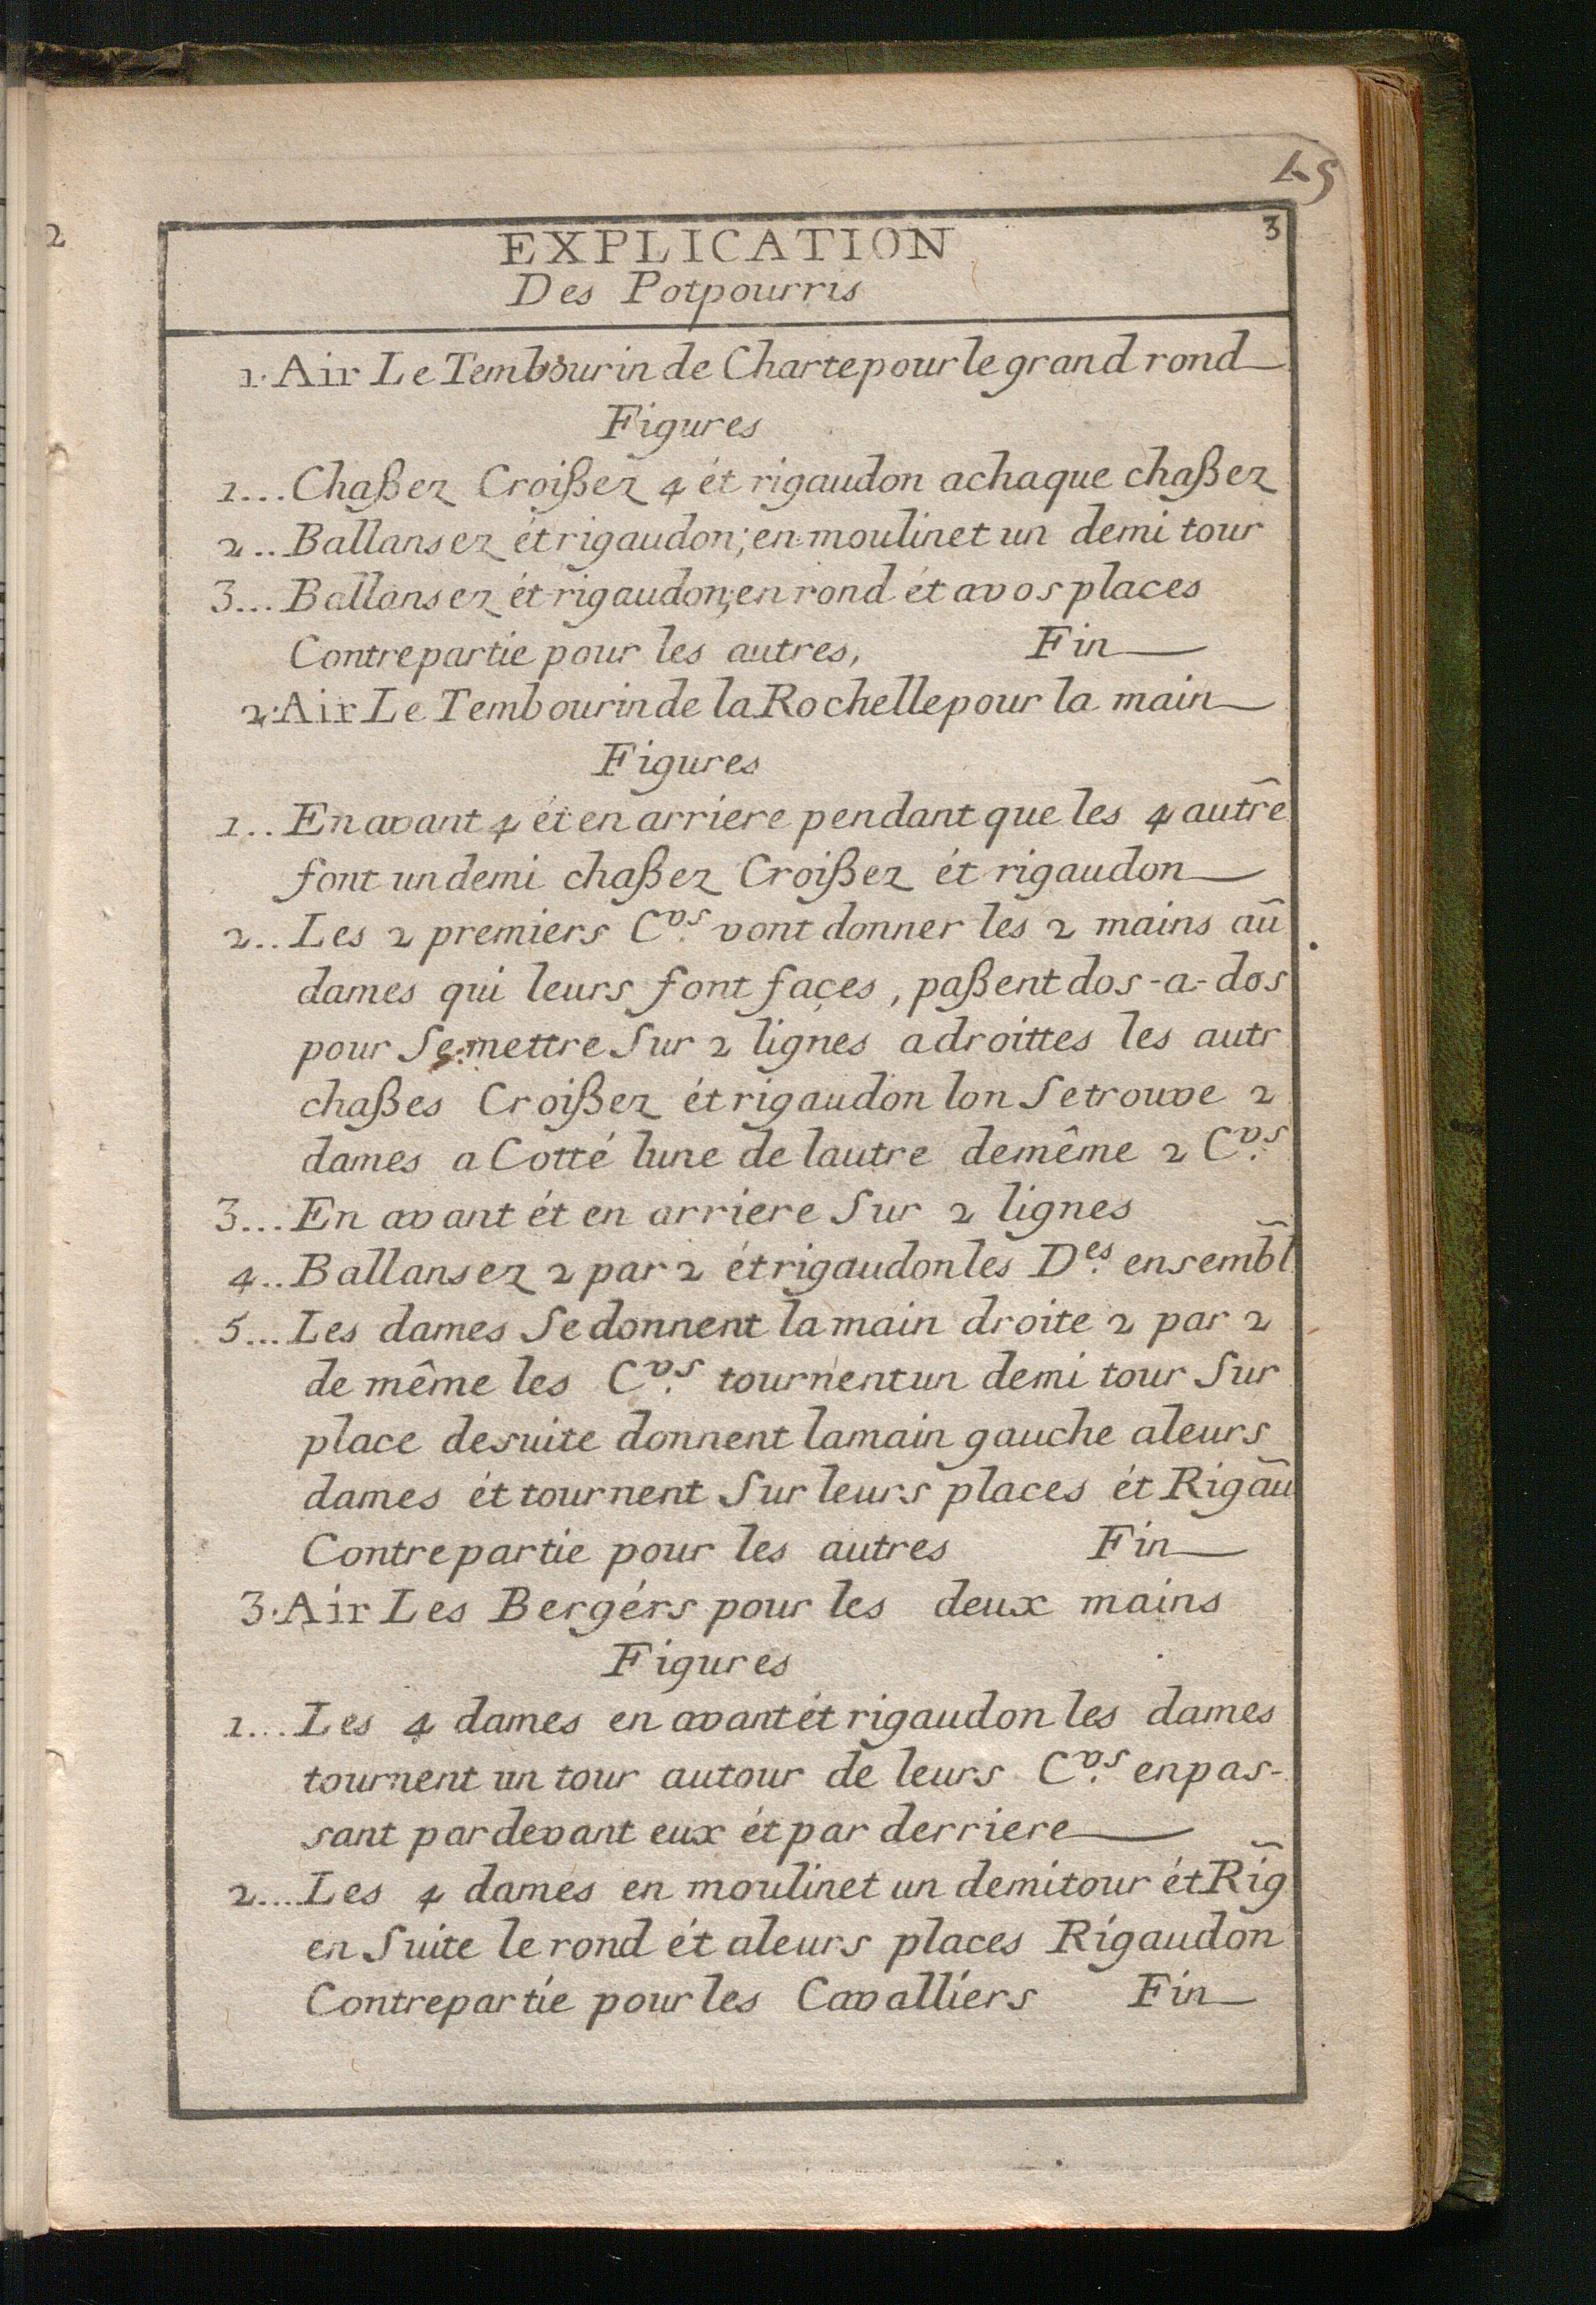 45
2
3
EXPLICATION
Des Potpourris
1. Air Le Tembourin de Charte pour le grand rond
Figures
1... Chaßez Croißez 4 ét rigaudon a chaque chaßez
2.. Ballansez ét rigaudon; en moulinet un demi tour
3... Ballansez ét rigaudon; en rond ét a vos places
Contrepartie pour les autres, Fin
2. Air Le Tembourin de la Rochelle pour la main
Figures
1.. En avant 4 ét en arriere pendant que les 4 autr̃e
font un demi chaßez Croißez ét rigaudon
2.. Les 2 premiers C.vs vont donner les 2 mains aũ
dames qui leurs font façes, paßent dos-a-dos
pour Se mettre Sur 2 lignes a droittes les autr
chaßes Croißez ét rigaudon lon Se trouve 2
dames a Cotté lune de lautre de même 2 C.vs
3... En avant ét en arriere Sur 2 lignes
4.. Ballansez 2 par 2 ét rigaudon les D.es ensemb̃l
5... Les dames Se donnent la main droite 2 par 2
de même les C.vs tournent un demi tour Sur
place de suite donnent la main gauche a leurs
dames ét tournent Sur leurs places ét Rigaũ
Contrepartie pour les autres Fin
3. Air Les Bergérs pour les deux mains
Figures
1... Les 4 dames en avant ét rigaudon les dames
tournent un tour autour de leurs C.vs en pas-
sant par devant eux ét par derriere
2.... Les 4 dames en moulinet un demi tour ét Rĩg
en Suite le rond ét a leurs places Rigaudon
Contrepartie pour les Cavalliers Fin